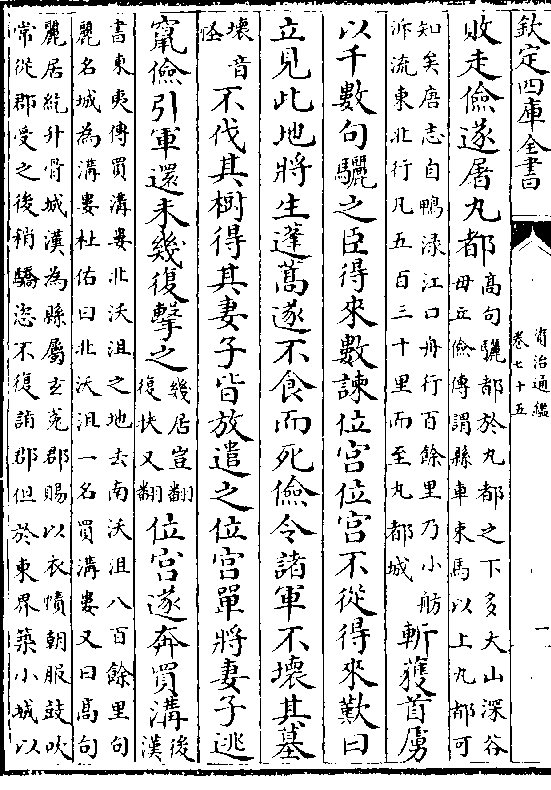 欽定四庫全書
資治通鑑
卷七十五
一
敗走儉遂屠丸都高句驪都於丸都之下多大山深谷
毋丘儉傳謂縣車束馬以上丸都可
知矣唐志自鴨渌江口舟行百餘里乃小舫
泝流東北行凡五百三十里而至丸都城斬獲首虜
以千數句驪之臣得來數諫位宫位宫不從得來歎曰
立見此地將生蓬蒿遂不食而死儉令諸軍不壞其墓
壞音
怪不伐其樹得其妻子皆放遣之位宫單將妻子逃
竄儉引軍還未幾復擊之幾居豈翻
復扶又翻位宫遂奔買溝後漢
書東夷傳買溝婁北沃沮之地去南沃沮八百餘里句
麗名城為溝婁杜佑曰北沃沮一名買溝婁又曰髙句
麗居紇升骨城漢為縣屬玄菟郡賜以衣幘朝服鼓吹
常從郡受之後稍驕恣不復詣郡但於東界築小城以